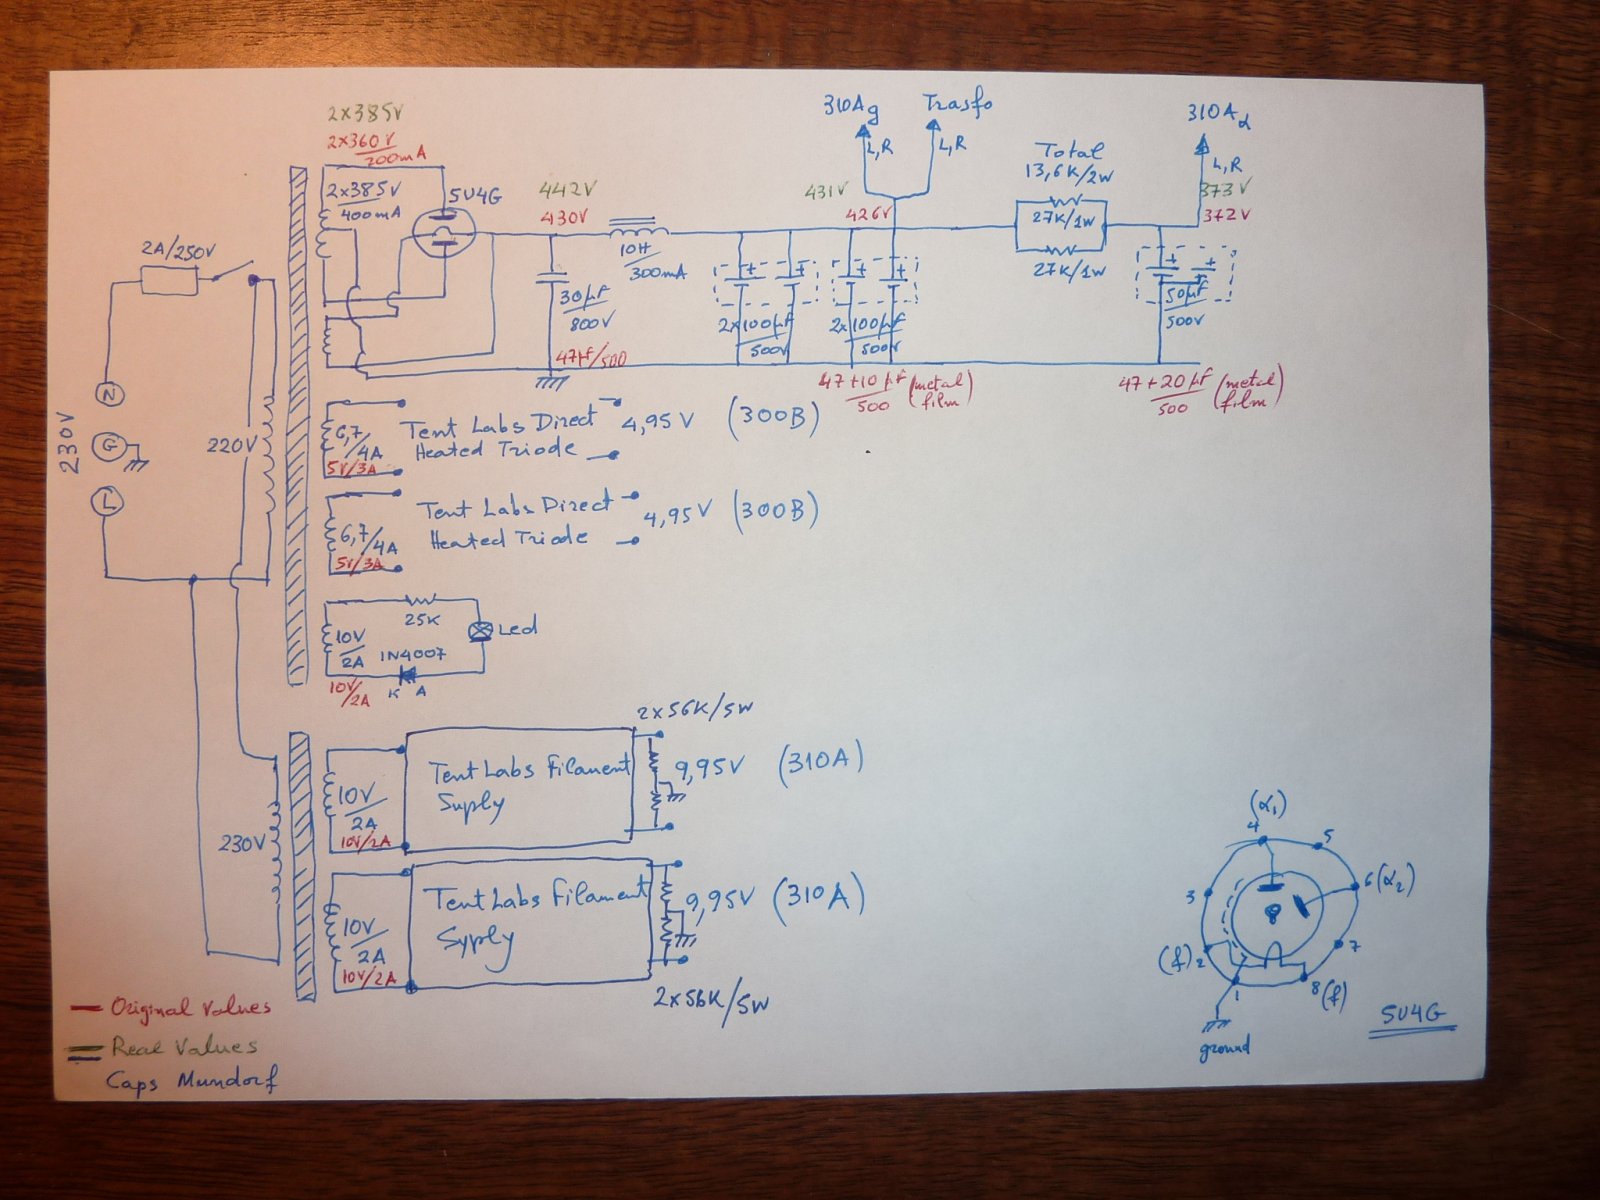 2x385V
2x360V/200mA
2x385V/400mA
5U4G
2A/250V
442V
430V
10H/300mA
30µF/800V
47µF/500
310Ag
Trasfo
L,R
L,R
431V
426V
2x100µF/500V
2x100µF/500V
47+10µF/500 (metal film)
Total
13,6K/2W
27K/1W
27K/1W
310Aα
L,R
373V
372V
50µF/500V
47+20µF/500 (metal film)
230V
N
G
L
220V
6,7/4A
5V/3A
Tent Labs Direct
Heated Triode
4,95V (300B)
6,7/4A
5V/3A
Tent Labs Direct
Heated Triode
4,95V (300B)
25K
10V/2A
1N4007
Led
K A
10V/2A
230V
2x56K/5W
10V/2A
10V/2A
Tent Labs Filament
Suply
9,95V (310A)
10V/2A
10V/2A
Tent Labs Filament
Syply
9,95V (310A)
2x56K/5W
(α1)
4
5
3
6(α2)
8
(f)2
7
1
8(f)
ground
5U4G
Original Values
Real Values
Caps Mundorf